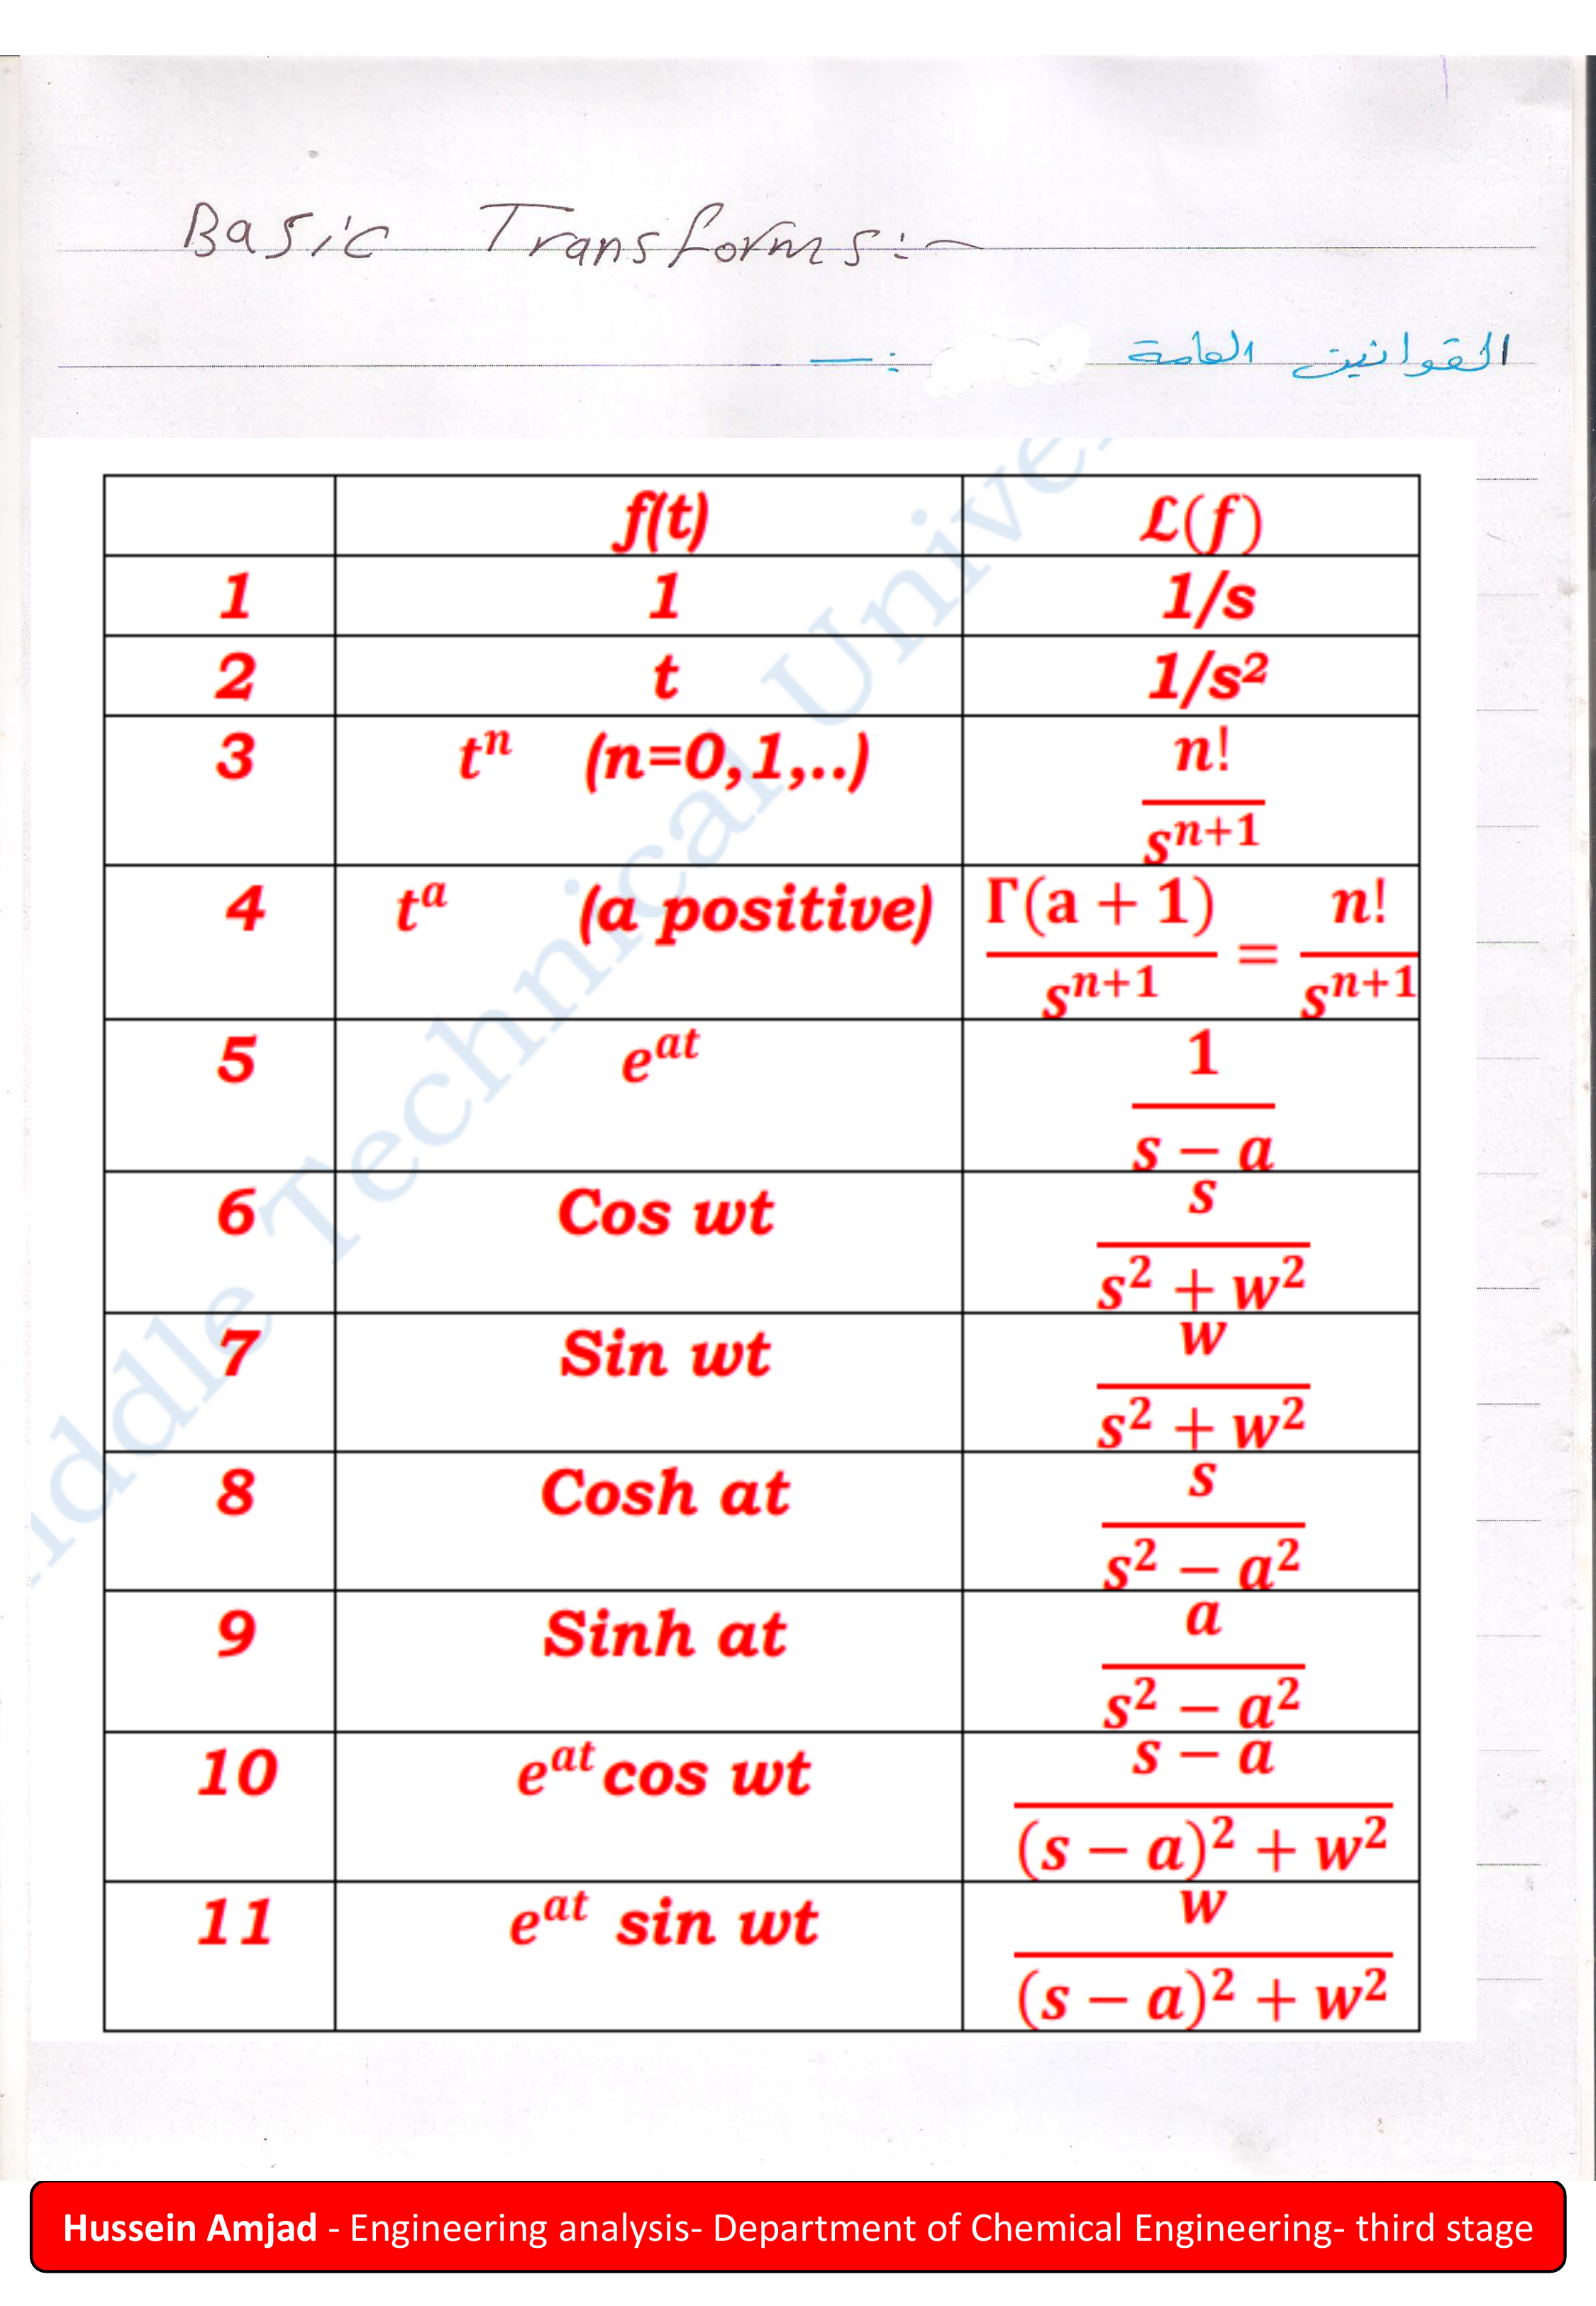 Basic Transforms:-
القوانين العامة :-
f(t) ℒ(f)
1 1 1/s
2 t 1/s²
3 tⁿ (n=0,1,..) n!/sⁿ⁺¹
4 tᵃ (a positive) Γ(a + 1)/sⁿ⁺¹ = n!/sⁿ⁺¹
5 eᵃᵗ 1/(s − a)
6 Cos wt s/(s² + w²)
7 Sin wt w/(s² + w²)
8 Cosh at s/(s² − a²)
9 Sinh at a/(s² − a²)
10 eᵃᵗ cos wt (s − a)/((s − a)² + w²)
11 eᵃᵗ sin wt w/((s − a)² + w²)
ddle Technical Unive
Hussein Amjad - Engineering analysis- Department of Chemical Engineering- third stage